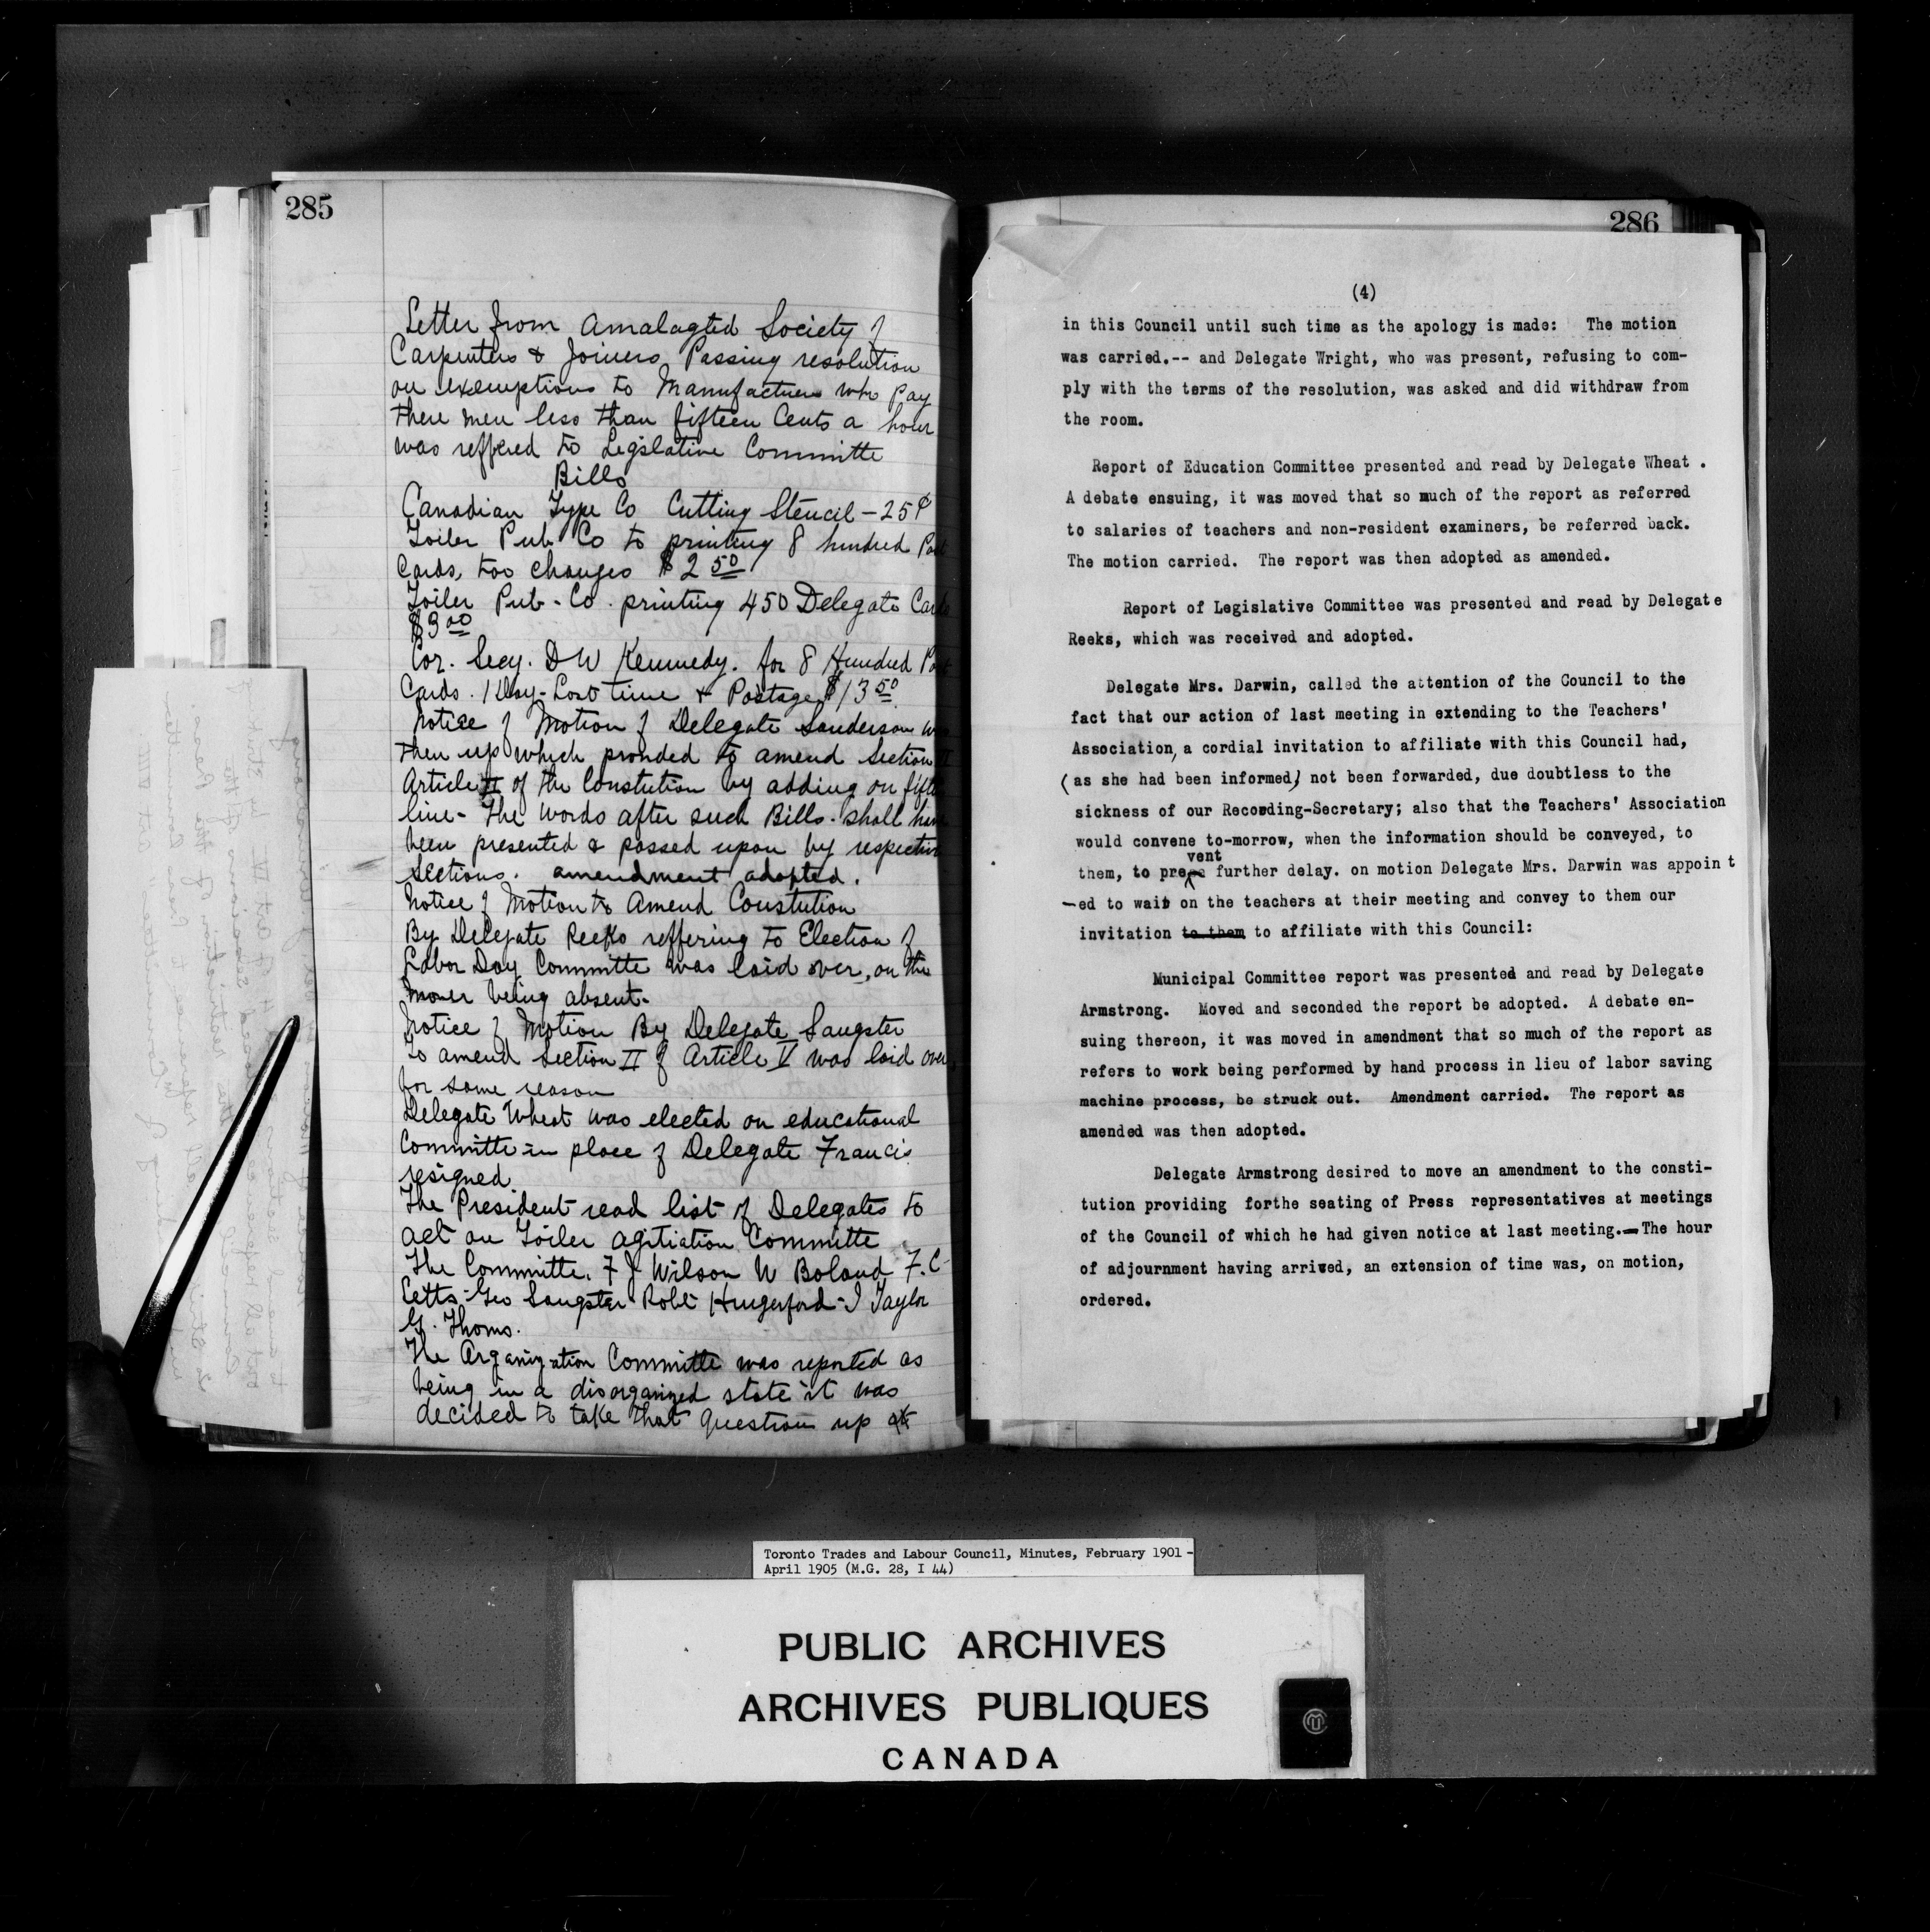 285
Letter from Amalagted Society of
Carpenters & Joiners Passing resolution
on exemptions to Manufactures who pay
there men less than fifteen Cents a hour
was reffered to Legislative Committe
Bills
Canadian Type Co Cutting Stencil - 25¢
Toiler Pub Co to printing 8 hundred Post
Cards, too changes $2 50
Toiler Pub - Co. printing 450 Delegate Cards
$3 00
Cor. Secy. D W Kennedy. for 8 Hundred Post
Cards. 1 Day - Lost time & Postage $13 50
Notice of Motion of Delegate Sanderson was
then up which provided to amend Section II
Article II of the Constution by adding on fifth
line - the words after such Bills. shall have
been presented & passed upon by respective
sections. amendment adopted.
Notice of Motion to Amend Constution
By Delegate Reeks reffering to Election of
Labor Day Committe was laid over, on the
mover being absent.
Notice of Motion By Delegate Sangster
to amend Section II of Article V was laid over
for same reason
Delegate Wheat was elected on educational
Committe in place of Delegate Francis
resigned
The President read list of Delegates to
act on Toiler agitiation Committe
The Committe. F J Wilson W Boland F. C
Cetts - Geo Sangster Robt Hungerford - I Taylor
G. Thoms.
The Organization Committe was reported as
being in a disorganized state it was
decided to take that question up at
286
(4)
in this Council until such time as the apology is made: The motion
was carried.-- and Delegate Wright, who was present, refusing to com-
ply with the terms of the resolution, was asked and did withdraw from
the room.
Report of Education Committee presented and read by Delegate Wheat .
A debate ensuing, it was moved that so much of the report as referred
to salaries of teachers and non-resident examiners, be referred back.
The motion carried. The report was then adopted as amended.
Report of Legislative Committee was presented and read by Delegate
Reeks, which was received and adopted.
Delegate Mrs. Darwin, called the attention of the Council to the
fact that our action of last meeting in extending to the Teachers'
Association, a cordial invitation to affiliate with this Council had,
(as she had been informed) not been forwarded, due doubtless to the
sickness of our Recording-Secretary; also that the Teachers' Association
would convene to-morrow, when the information should be conveyed, to
vent
them, to pre further delay. on motion Delegate Mrs. Darwin was appoin t
-ed to wait on the teachers at their meeting and convey to them our
invitation to them to affiliate with this Council:
Municipal Committee report was presented and read by Delegate
Armstrong. Moved and seconded the report be adopted. A debate en-
suing thereon, it was moved in amendment that so much of the report as
refers to work being performed by hand process in lieu of labor saving
machine process, be struck out. Amendment carried. The report as
amended was then adopted.
Delegate Armstrong desired to move an amendment to the consti-
tution providing forthe seating of Press representatives at meetings
of the Council of which he had given notice at last meeting.—The hour
of adjournment having arrived, an extension of time was, on motion,
ordered.
Toronto Trades and Labour Council, Minutes, February 1901 -
April 1905 (M.G. 28, I 44)
PUBLIC ARCHIVES
ARCHIVES PUBLIQUES
CANADA